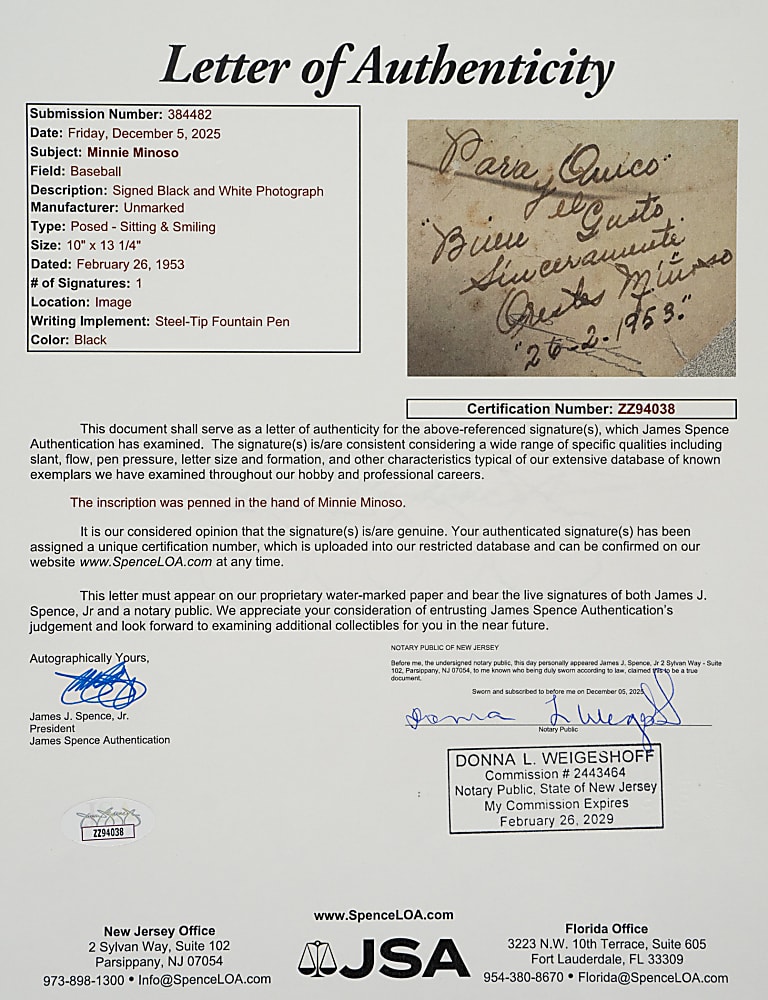 Letter of Authenticity
Submission Number: 384482
Date: Friday, December 5, 2025
Subject: Minnie Minoso
Field: Baseball
Description: Signed Black and White Photograph
Manufacturer: Unmarked
Type: Posed - Sitting & Smiling
Size: 10" x 13 1/4"
Dated: February 26, 1953
# of Signatures: 1
Location: Image
Writing Implement: Steel-Tip Fountain Pen
Color: Black
Para Quico
y el Gusto
"Buen
Sinceramente
Orestes Minoso
"26-2-1953."
Certification Number: ZZ94038
This document shall serve as a letter of authenticity for the above-referenced signature(s), which James Spence
Authentication has examined. The signature(s) is/are consistent considering a wide range of specific qualities including
slant, flow, pen pressure, letter size and formation, and other characteristics typical of our extensive database of known
exemplars we have examined throughout our hobby and professional careers.
The inscription was penned in the hand of Minnie Minoso.
It is our considered opinion that the signature(s) is/are genuine. Your authenticated signature(s) has been
assigned a unique certification number, which is uploaded into our restricted database and can be confirmed on our
website www.SpenceLOA.com at any time.
This letter must appear on our proprietary water-marked paper and bear the live signatures of both James J.
Spence, Jr and a notary public. We appreciate your consideration of entrusting James Spence Authentication's
judgement and look forward to examining additional collectibles for you in the near future.
Autographically Yours,
James J. Spence, Jr.
President
James Spence Authentication
NOTARY PUBLIC OF NEW JERSEY
Before me, the undersigned notary public, this day personally appeared James J. Spence, Jr 2 Sylvan Way - Suite
102, Parsippany, NJ 07054, to me known who being duly sworn according to law, claimed this to be a true
document.
Sworn and subscribed to before me on December 05, 2025
Donna L Weigeshoff
Notary Public
DONNA L. WEIGESHOFF
Commission # 2443464
Notary Public, State of New Jersey
My Commission Expires
February 26, 2029
ZZ94038
www.SpenceLOA.com
New Jersey Office
2 Sylvan Way, Suite 102
Parsippany, NJ 07054
973-898-1300 • Info@SpenceLOA.com
JSA
Florida Office
3223 N.W. 10th Terrace, Suite 605
Fort Lauderdale, FL 33309
954-380-8670 • Florida@SpenceLOA.com